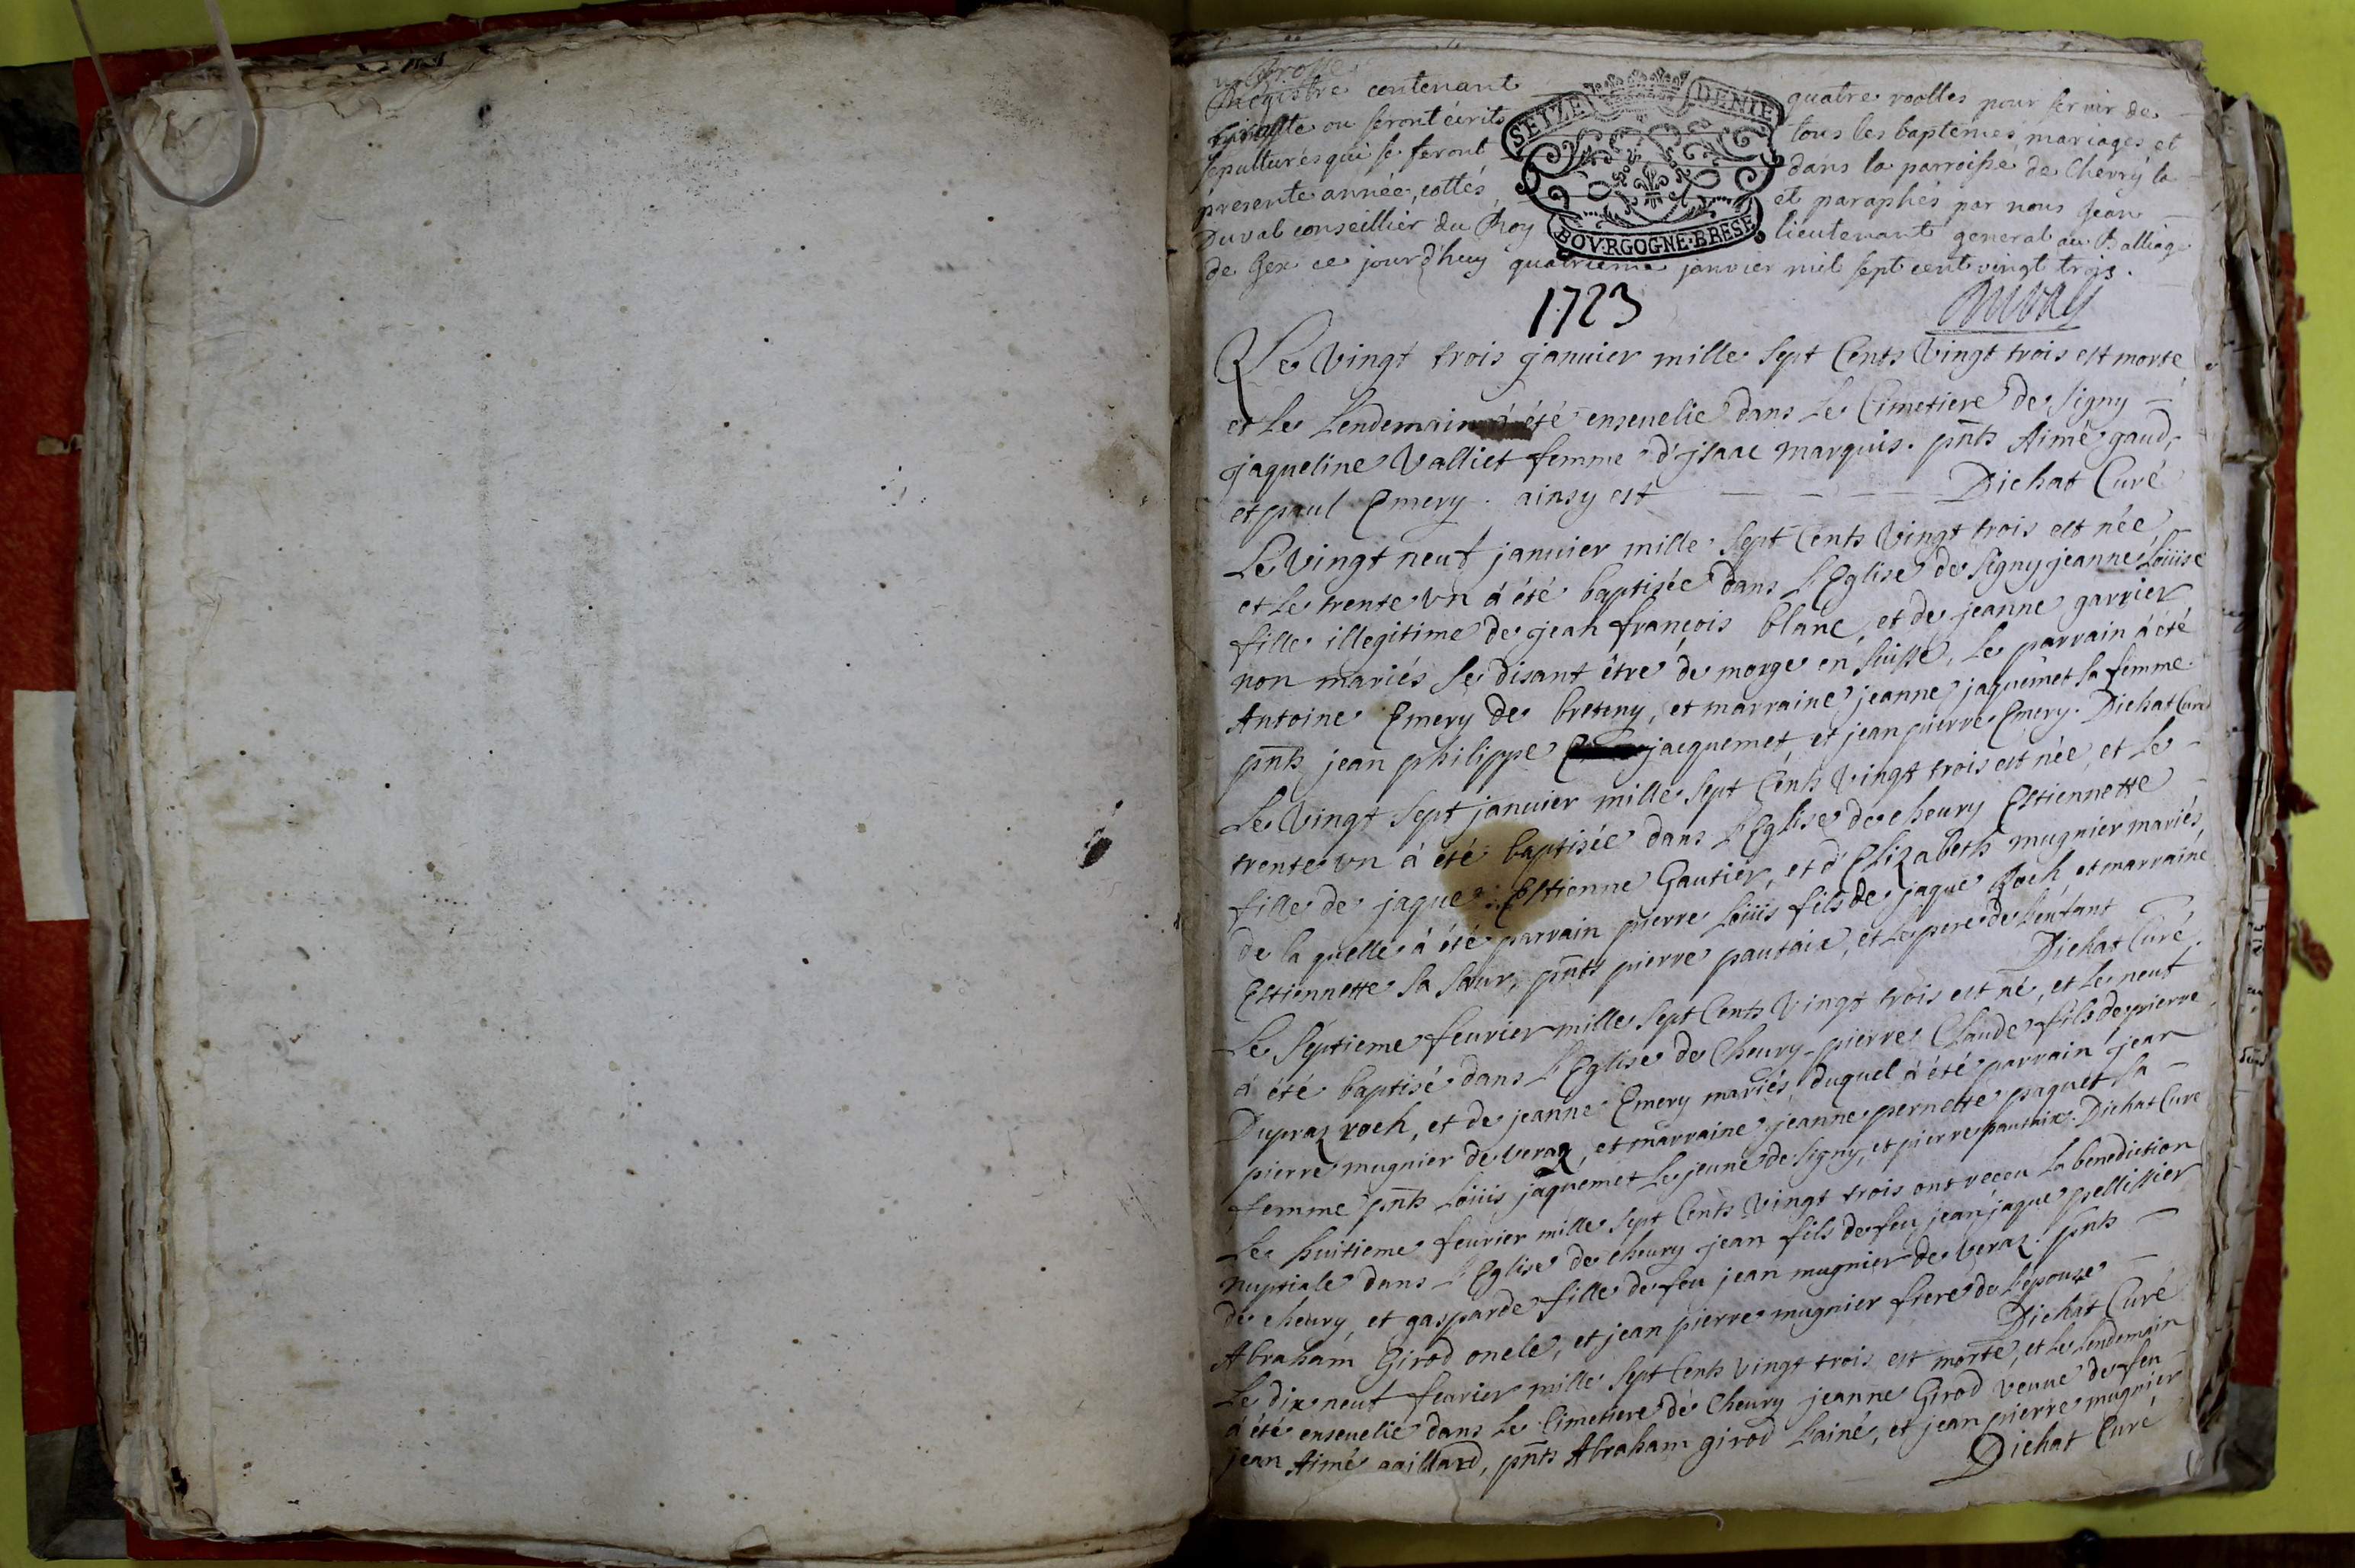 Registre contenant quatre roolles pour servir de
minutte ou seront écrits tous les baptemes, mariages et
sepultures qui se feront dans la parroisse de Chevry la
presente année, cottés et paraphés par nous Jean
Duval conseillier du Roy lieutenant general au Balliage
de Gex ce jourd'huy quatrieme janvier mil sept cent vingt trois.
SEIZE DENIE
BOVRGOGNE·BRESE
1723
Duval
Le Vingt trois janvier mille sept Cents Vingt trois est morte
et Le Lendemain à été enseuelie dans Le Cimetiere de Signy
jaqueline Valliet femme d'jsaac marquis. pnts Aimé gaud,
et paul Emery. ainsy est Dichat Curé
Le Vingt neuf januier mille sept Cents Vingt trois est née,
et Le trente vn à été baptisée dans L'Eglise de Signy jeanne Loüise
fille illegitime de jean françois blanc, et de jeanne garrier
non mariés se disant être de morge en suisse, Le parrain à été
Antoine Emery de bretiny, et marraine jeanne jaquemet sa femme.
pnts jean philippe jacquemet, et jean pierre Emery. Dichat Curé
Le Vingt sept januier mille sept Cents Vingt trois est née, et Le
trente vn à été baptisée dans L'Eglise de cheury Estiennette
fille de jaque Estienne Gautier, et d'Elizabeth mugnier mariés,
de laquelle à été parrain pierre Loüis fils de jaque Roch, et marraine
Estiennette sa sœur, pnts pierre pautaix, et Le pere de L'enfant
Dichat Curé.
Le Septieme feurier mille sept Cents Vingt trois est né, et Le neuf
à été baptisé dans L'Eglise de Cheury pierre Claude fils de pierre
Dupraz roch, et de jeanne Emery mariés, duquel à été parrain jean
pierre mugnier de veraz, et marraine jeanne pernette paquet sa
femme pnts Loüis jaquemet Le jeune de Signy, et pierre pautaix. Dichat Curé
Le huitieme feurier mille sept Cents Vingt trois ont receu La benediction
nuptiale dans L'Eglise de cheury jean fils de feu jean jaque pellissier
de cheury, et gasparde fille de feu jean mugnier de veraz. pnts
Abraham Girod oncle, et jean pierre mugnier frere de L'épouse
Dichat Curé
Le dix neuf feurier mille sept Cents vingt trois est morte, et Le Lendemain
à été enseuelie dans Le Cimetiere de Cheury jeanne Girod veuue de feu
jean Aimé gaillard, pnts Abraham girod L'ainé, et jean pierre mugnier
Dichat Curé